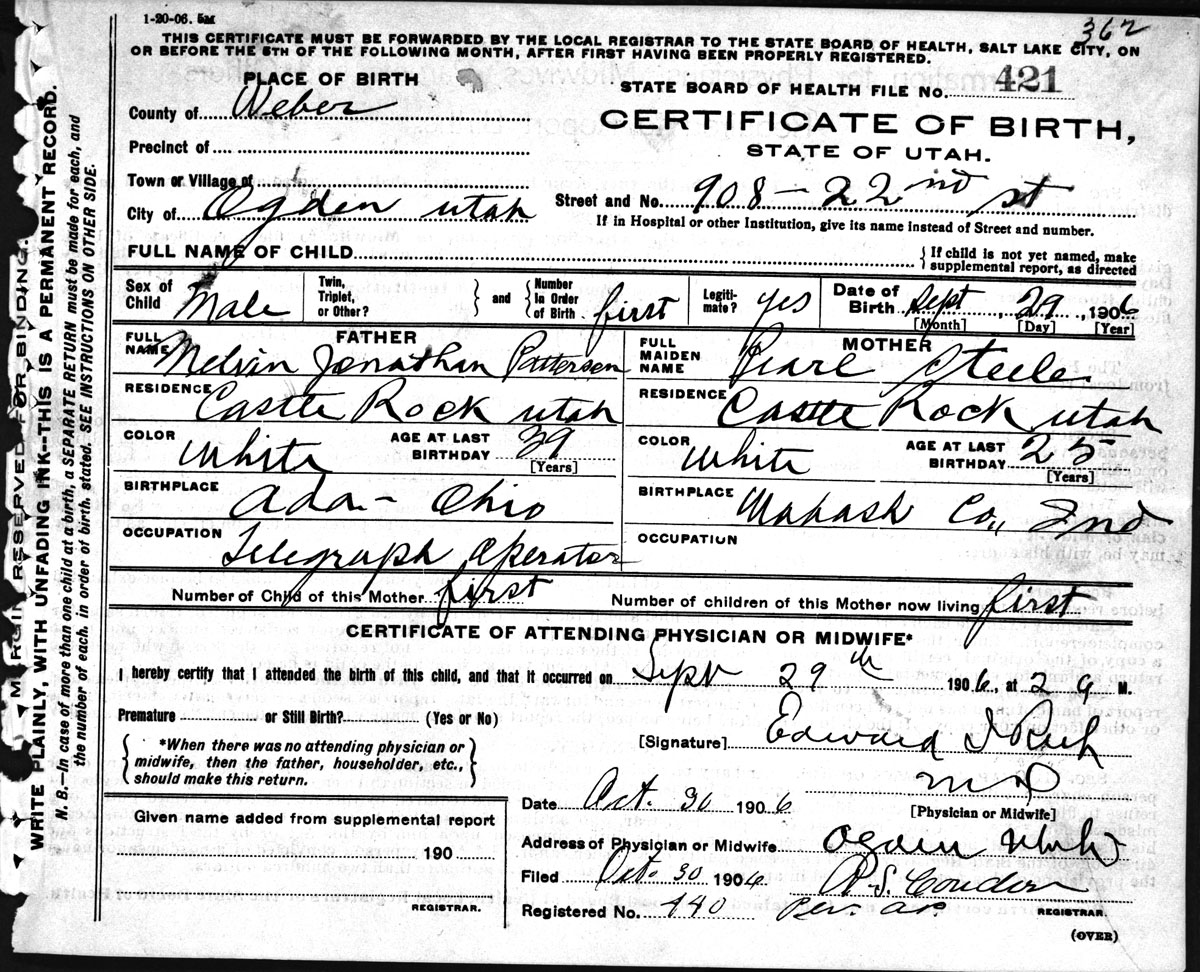 1-20-06. 5M
362
THIS CERTIFICATE MUST BE FORWARDED BY THE LOCAL REGISTRAR TO THE STATE BOARD OF HEALTH, SALT LAKE CITY, ON
OR BEFORE THE 5TH OF THE FOLLOWING MONTH, AFTER FIRST HAVING BEEN PROPERLY REGISTERED.
PLACE OF BIRTH
STATE BOARD OF HEALTH FILE No. 421
County of Weber
CERTIFICATE OF BIRTH,
STATE OF UTAH.
Precinct of
Town or Village of
City of Ogden Utah
Street and No. 908-22nd st
If in Hospital or other Institution, give its name instead of Street and number.
FULL NAME OF CHILD
{If child is not yet named, make
supplemental report, as directed
Sex of Child Male
Twin, Triplet, or Other?
and
Number In Order of Birth first
Legiti-mate? yes
Date of Birth Sept, 29, 1906
[Month] [Day] [Year]
FATHER
FULL NAME Melvin Jonathan Patterson
MOTHER
FULL MAIDEN NAME Pearl Steele
RESIDENCE Castle Rock Utah
RESIDENCE Castle Rock Utah
COLOR White
AGE AT LAST BIRTHDAY 39
[Years]
COLOR White
AGE AT LAST BIRTHDAY 25
[Years]
BIRTHPLACE Ada - Ohio
BIRTHPLACE Wabash Co., Ind
OCCUPATION Telegraph Operator
OCCUPATION
Number of Child of this Mother first
Number of children of this Mother now living first
CERTIFICATE OF ATTENDING PHYSICIAN OR MIDWIFE*
I hereby certify that I attended the birth of this child, and that it occurred on Sept 29th 1906, at 2 a M.
Premature or Still Birth? (Yes or No)
{*When there was no attending physician or
midwife, then the father, householder, etc.,
should make this return.}
[Signature] Edward I
MD
[Physician or Midwife]
Date Oct. 30 1906
Given name added from supplemental report
190
REGISTRAR.
Address of Physician or Midwife Ogden Utah
Filed Oct. 30 1906
Registered No. 440
REGISTRAR.
(OVER)
MARGIN RESERVED FOR BINDING.
WRITE PLAINLY, WITH UNFADING INK--THIS IS A PERMANENT RECORD.
N. B.—In case of more than one child at a birth, a SEPARATE RETURN must be made for each, and
the number of each, in order of birth, stated. SEE INSTRUCTIONS ON OTHER SIDE.